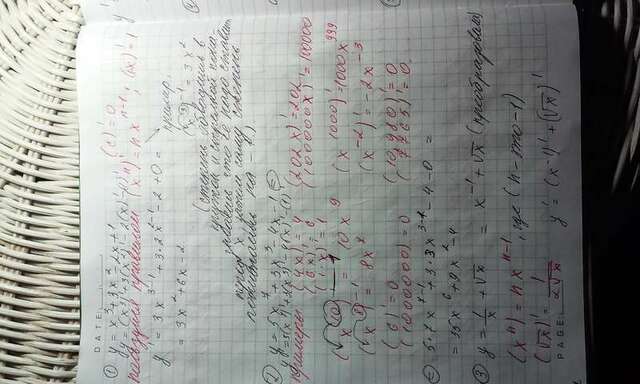 DATE
① y = x³+3x²-2x+1
y' = (x³)'+3(x²)'-2(x)'-(1)' (c)' = 0
пользуемся правилом (xⁿ)' = nxⁿ⁻¹; (x)' = 1
y' = 3x³⁻¹+3·2x²⁻¹-2+0=
пример,
= 3x²+6x-2. (x³)' = 3x²
(степень обводишь в
кружок и стрелкой пока-
зываешь что ее надо ставить
перед x, затем саму степень
понижаешь на -1)
② y = 5x⁷+3x³-4x-1 ⊜
y' = 5(x⁷)'+3(x³)'-4(x)'-(1)'
Примеры (4x)' = 4 (202x)' = 202
(6x)' = 6 (100000x)' = 100000
(1·x)' = 1
(x¹⁰)' = 10x⁹ (x¹⁰⁰⁰)' = 1000x⁹⁹⁹
(x⁸)' = 8x⁷ (x⁻²)' = -2x⁻³
(6)' = 0 (10,980)' = 0
(1000000)' = 0 (7765)' = 0
⊜ 5·7x⁷⁻¹+3·3x³⁻¹-4-0 =
= 35x⁶+9x²-4
③ y = 1/x + √x = x⁻¹+√x (преобразовали)
(xⁿ)' = nxⁿ⁻¹, где (n-это-1)
(√x)' = 1/2√x y' = (x⁻¹)'+(√x)'
PAGE